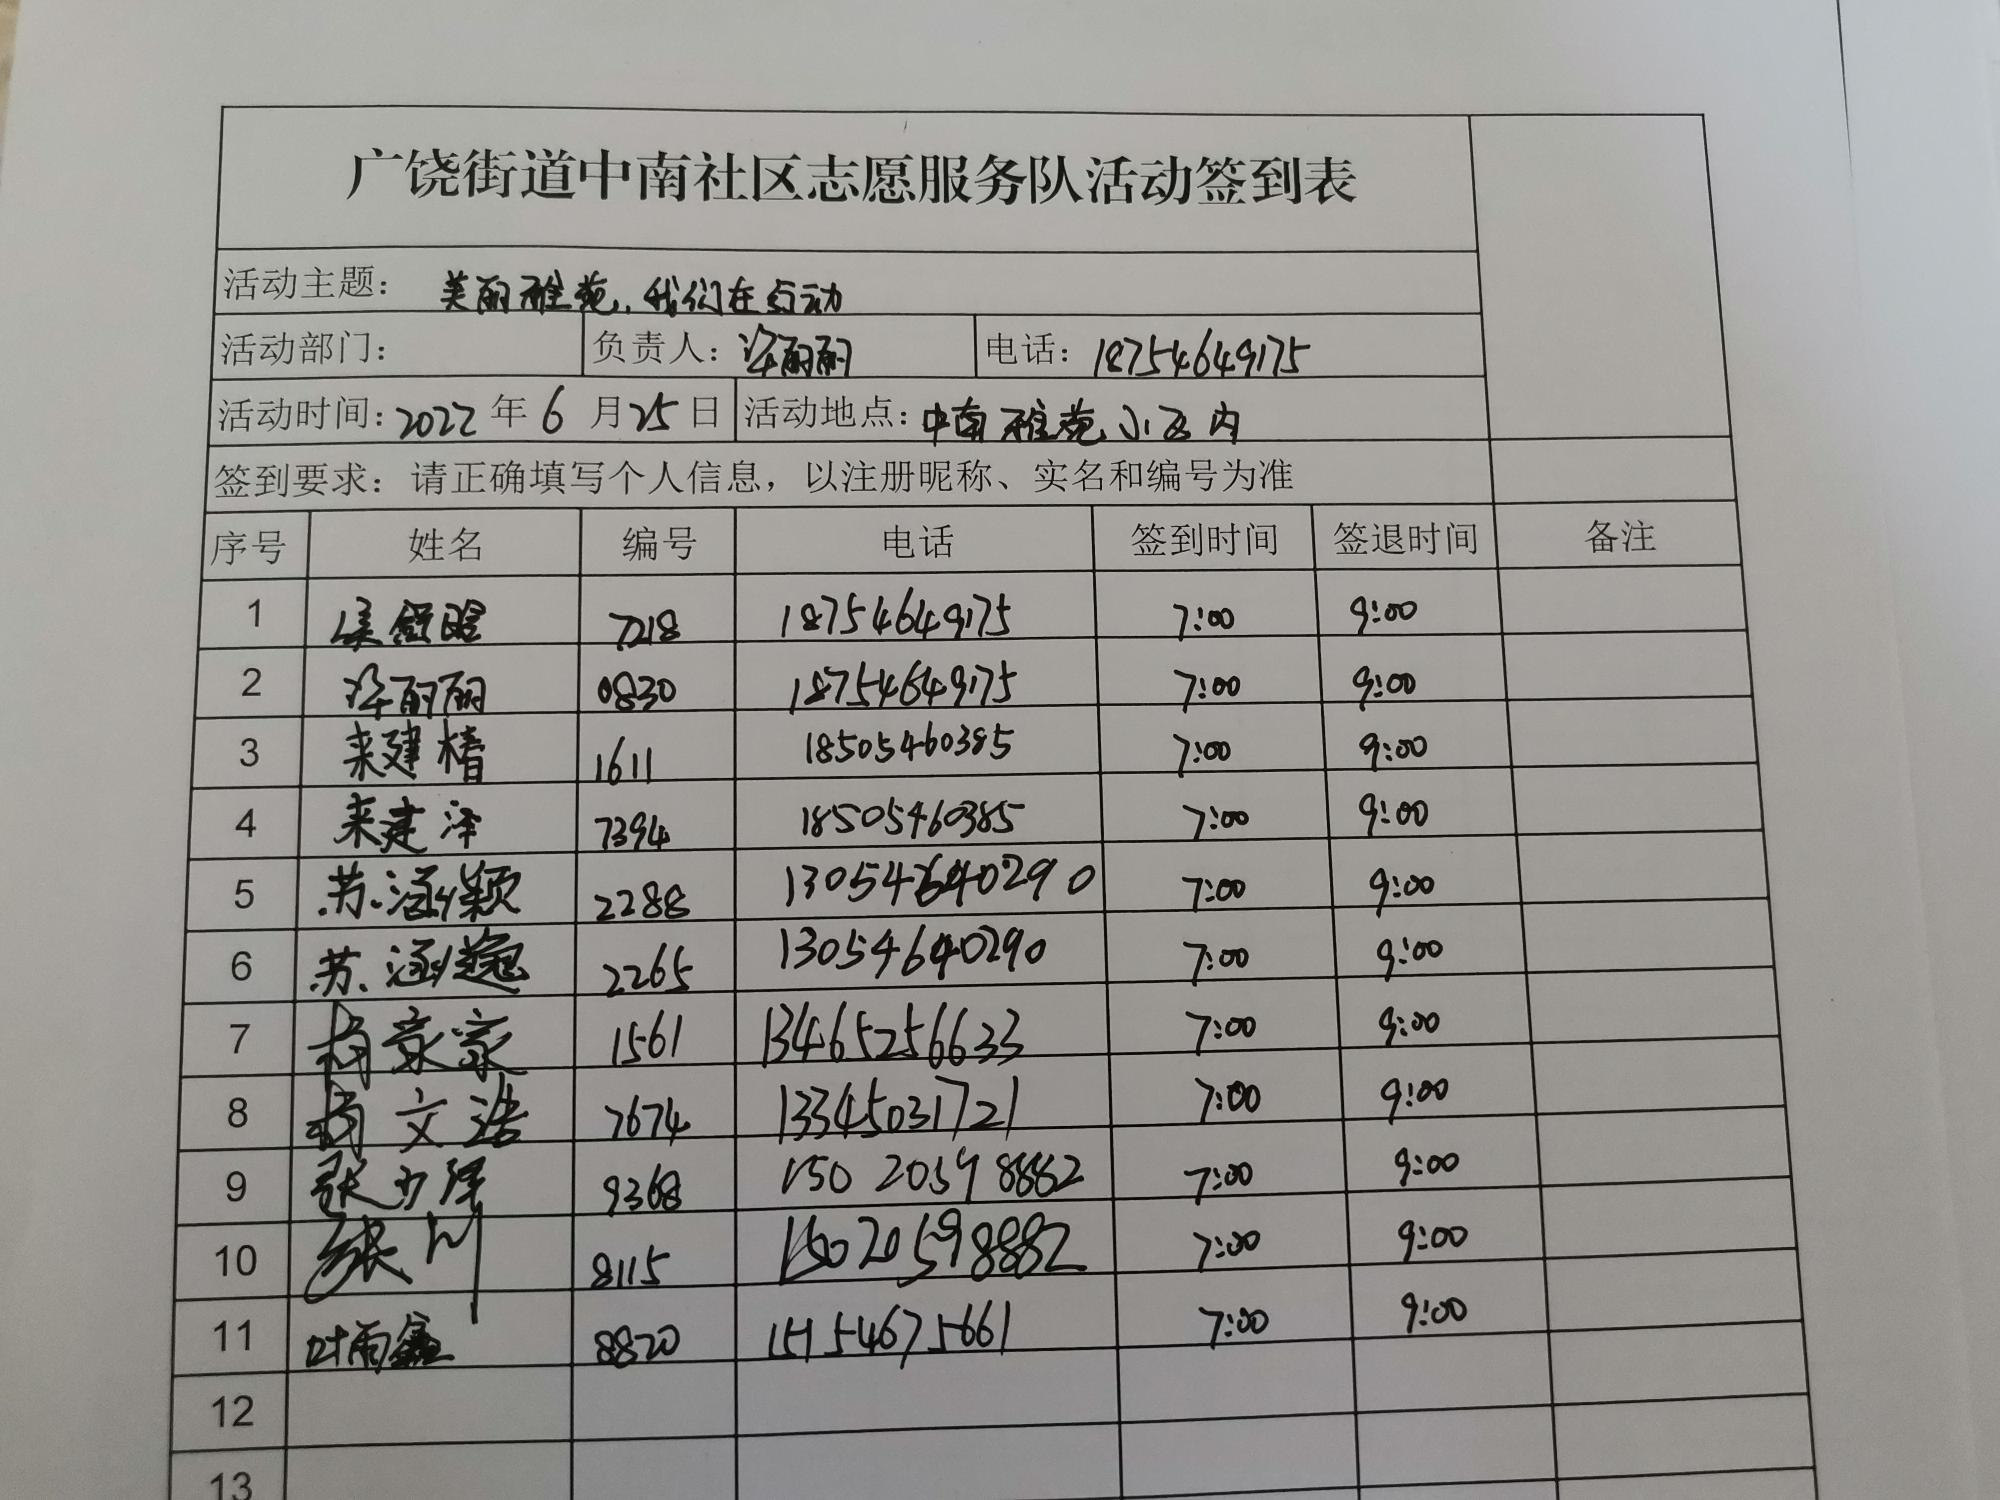 广饶街道中南社区志愿服务队活动签到表
活动主题： 美丽雅苑，我们在行动
活动部门： 负责人： 丽丽 电话：18754649175
活动时间：2022 年 6 月 25 日 活动地点：中南雅苑小区内
签到要求：请正确填写个人信息，以注册昵称、实名和编号为准
序号 姓名 编号 电话 签到时间 签退时间 备注
1 7218 18754649175 7:00 9:00
2 丽丽 0830 18754649175 7:00 9:00
3 来建椿 1611 18505460385 7:00 9:00
4 来建泽 7394 18505460385 7:00 9:00
5 苏涵颖 2288 7:00 9:00
6 苏涵逸 2265 13054640290 7:00 9:00
7 杨 1561 13465256633 7:00 9:00
8 杨文浩 7674 13345031721 7:00 9:00
9 张 9368 150 2059 8882 7:00 9:00
10 张川 8115 15020598882 7:00 9:00
11 叶雨鑫 8820 15154675661 7:00 9:00
12
13